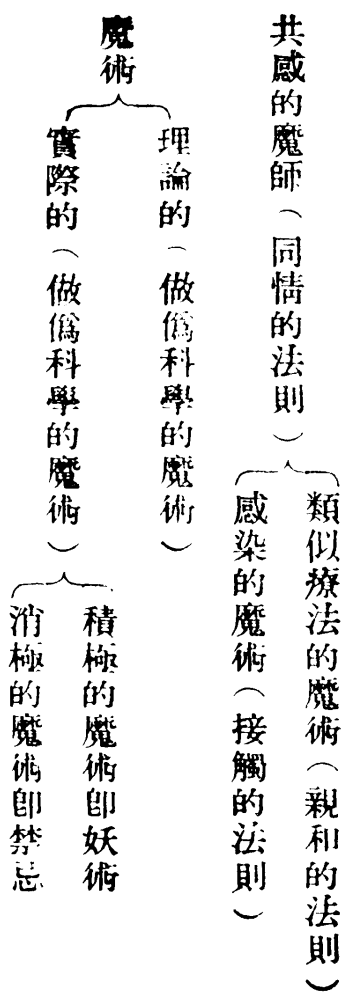 共感的魔師（同情的法則）
類似療法的魔術（親和的法則）
感染的魔術（接觸的法則）
魔術
理論的（做僞科學的魔術）
實際的（做僞科學的魔術）
積極的魔術卽妖術
消極的魔術卽禁忌